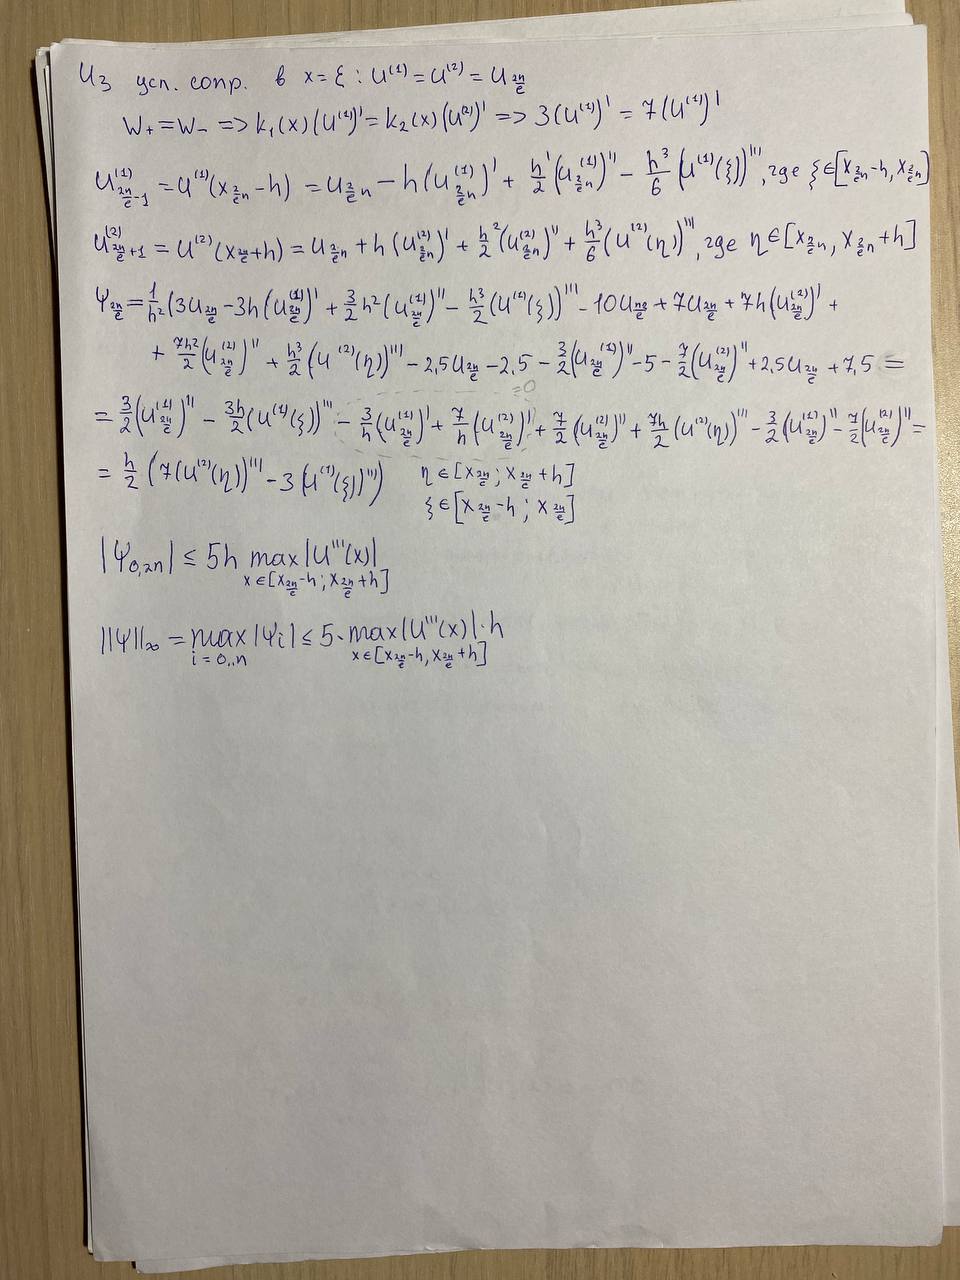 Из усл. сопр. в x = ξ : U⁽¹⁾ = U⁽²⁾ = U_{2n/e}
W₊ = W₋ => k₁(x)(U⁽¹⁾)' = k₂(x)(U⁽²⁾)' => 3(U⁽¹⁾)' = 7(U⁽¹⁾)'
U⁽¹⁾_{2n/e -1} = U⁽¹⁾(x_{2/e n} - h) = U_{2/e n} - h(U⁽¹⁾_{2/e n})' + h'/2 (U⁽¹⁾_{2/e n})'' - h³/6 (U⁽¹⁾(ξ))''', где ξ ∈ [x_{2/e n} - h, x_{2/e n}]
U⁽²⁾_{2n/e +1} = U⁽²⁾(x_{2n/e} + h) = U_{2/e n} + h(U⁽²⁾_{2/e n})' + h²/2 (U⁽²⁾_{2/e n})'' + h³/6 (U⁽²⁾(η))''', где η ∈ [x_{2/e n}, x_{2/e n} + h]
Ψ_{2n/e} = 1/h² (3U_{2n/e} - 3h(U⁽¹⁾_{2n/e})' + 3/2 h²(U⁽¹⁾_{2n/e})'' - h³/2 (U⁽¹⁾(ξ))''' - 10U_{n2/e} + 7U_{2n/e} + 7h(U⁽²⁾_{2n/e})' +
+ 7h²/2 (U⁽²⁾_{2n/e})'' + h³/2 (U⁽²⁾(η))''' - 2,5U_{2n/e} - 2,5 - 3/2 (U⁽¹⁾_{2n/e})'' - 5 - 7/2 (U⁽²⁾_{2n/e})'' + 2,5U_{2n/e} + 7,5 =
= 3/2 (U⁽¹⁾_{2n/e})'' - 3h/2 (U⁽¹⁾(ξ))''' - 3/h (U⁽¹⁾_{2n/e})' + 7/h (U⁽²⁾_{2n/e})' =0 + 7/2 (U⁽²⁾_{2n/e})'' + 7h/2 (U⁽²⁾(η))''' - 3/2 (U⁽¹⁾_{2n/e})'' - 7/2 (U⁽²⁾_{2n/e})'' =
= h/2 (7(U⁽²⁾(η))''' - 3(U⁽¹⁾(ξ))''') η ∈ [x_{2n/e} ; x_{2n/e} + h]
ξ ∈ [x_{2n/e} - h ; x_{2n/e}]
|Ψ_{0,2n}| ≤ 5h max |U'''(x)|
x ∈ [x_{2n/e} - h ; x_{2n/e} + h]
||Ψ||_∞ = max |Ψᵢ| ≤ 5 · max |U'''(x)| · h
i = 0..n x ∈ [x_{2n/e} - h, x_{2n/e} + h]